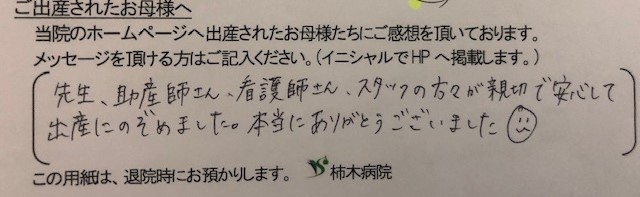 ご出産されたお母様へ
当院のホームページへ出産されたお母様たちにご感想を頂いております。
メッセージを頂ける方はご記入ください。(イニシャルでHPへ掲載します。)
先生、助産師さん、看護師さん、スタッフの方々が親切で安心して
出産にのぞめました。本当にありがとうございました
この用紙は、退院時にお預かりします。 柿木病院